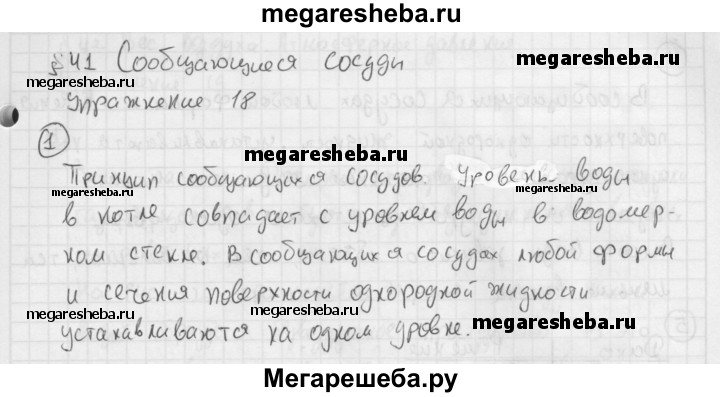 megaresheba.ru
§ 41 Сообщающиеся сосуды
megaresheba.ru
megaresheba.ru
Упражнение 18
①
megaresheba.ru
Принцип сообщающихся сосудов. Уровень воды
megaresheba.ru
megaresheba.ru
в котле совпадает с уровнем воды в водомер-
ном стекле. В сообщающихся сосудах любой формы
и сечения поверхности однородной жидкости
megaresheba.ru
megaresheba.ru
megaresheba.ru
устанавливаются на одном уровне.
Мегарешеба.ру